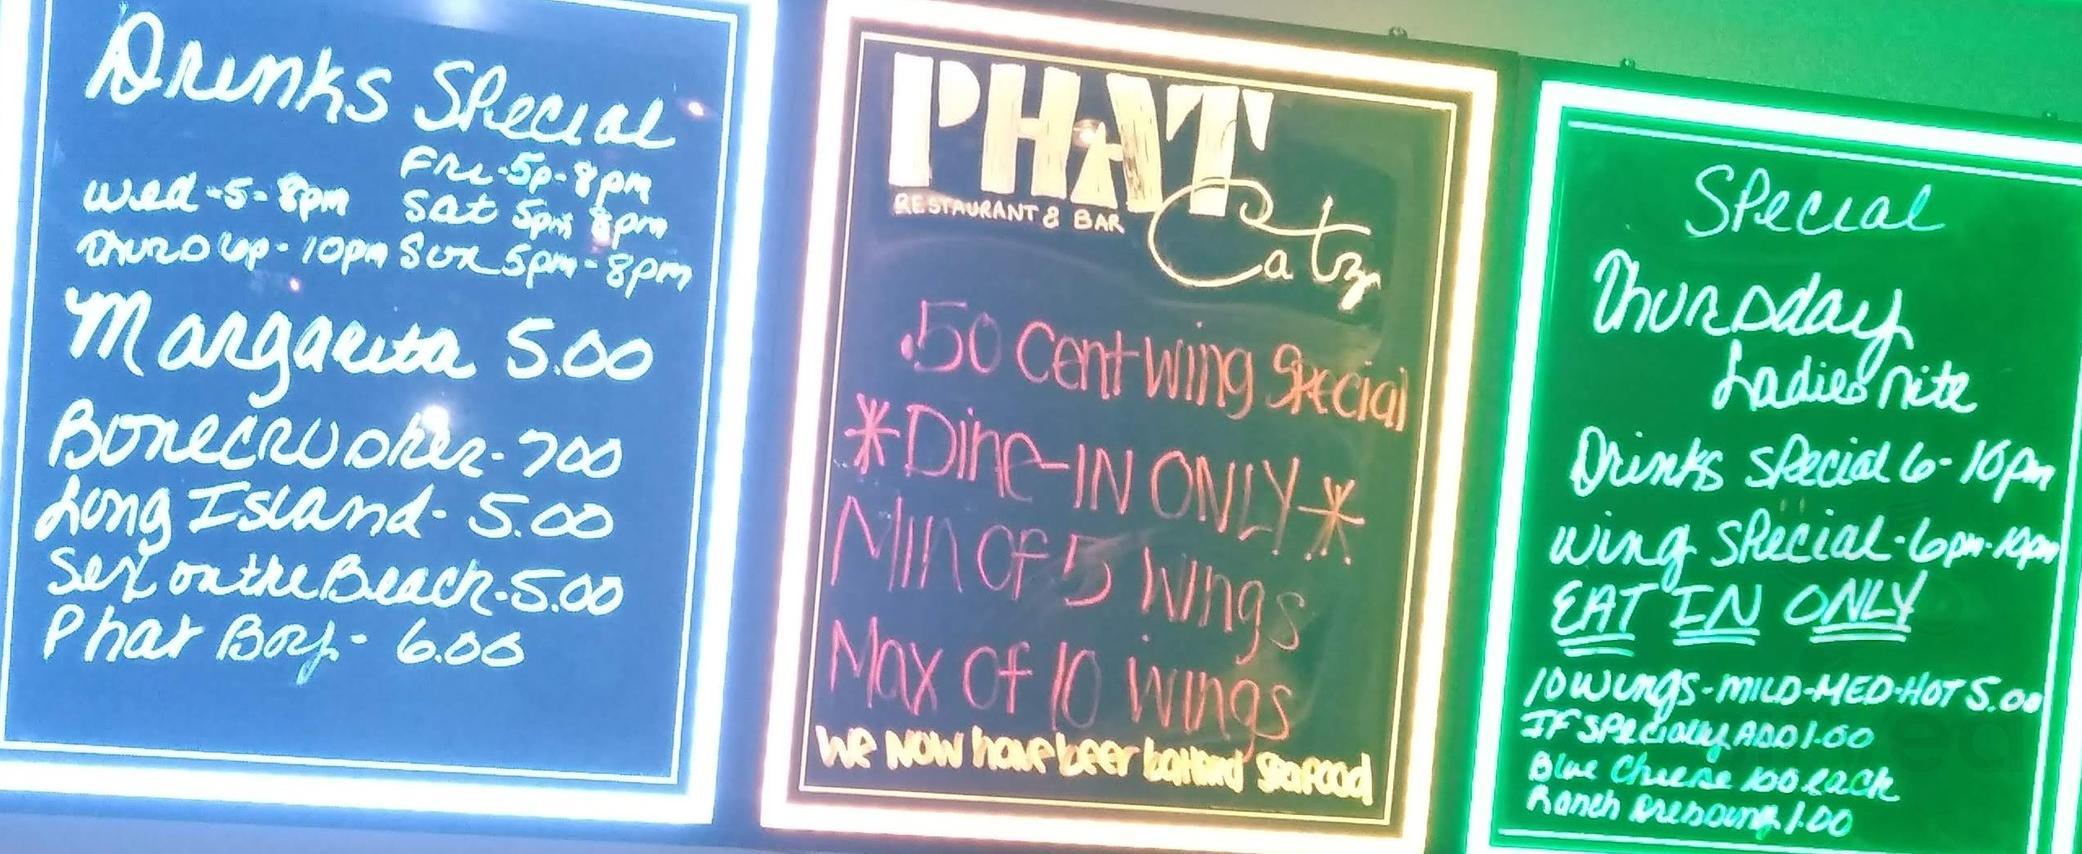 Drinks Special
Fri-5p-8pm
Wed-5-8pm
Sat 5pm 8pm
Thurs 6p-10pm Sun 5pm-8pm
Margarita 5.00
Bonecrusher-700
Long Island-5.00
Sex on the Beach-5.00
Phat Boy-6.00
PHAT
Catz
RESTAURANT & BAR
.50 Cent Wing Special
*Dine-IN ONLY*
Min Of 5 Wings
Max Of 10 Wings
We Now have beer batterd Seafood
Special
Thursday
Ladies nite
Drinks Special 6-10pm
Wing Special-6pm-10pm
EAT IN ONLY
10 Wings-MILD-MED-HOT 5.00
IF Specialty ADD 1.00
Blue Cheese 100 each
Ranch Dressing 1.00